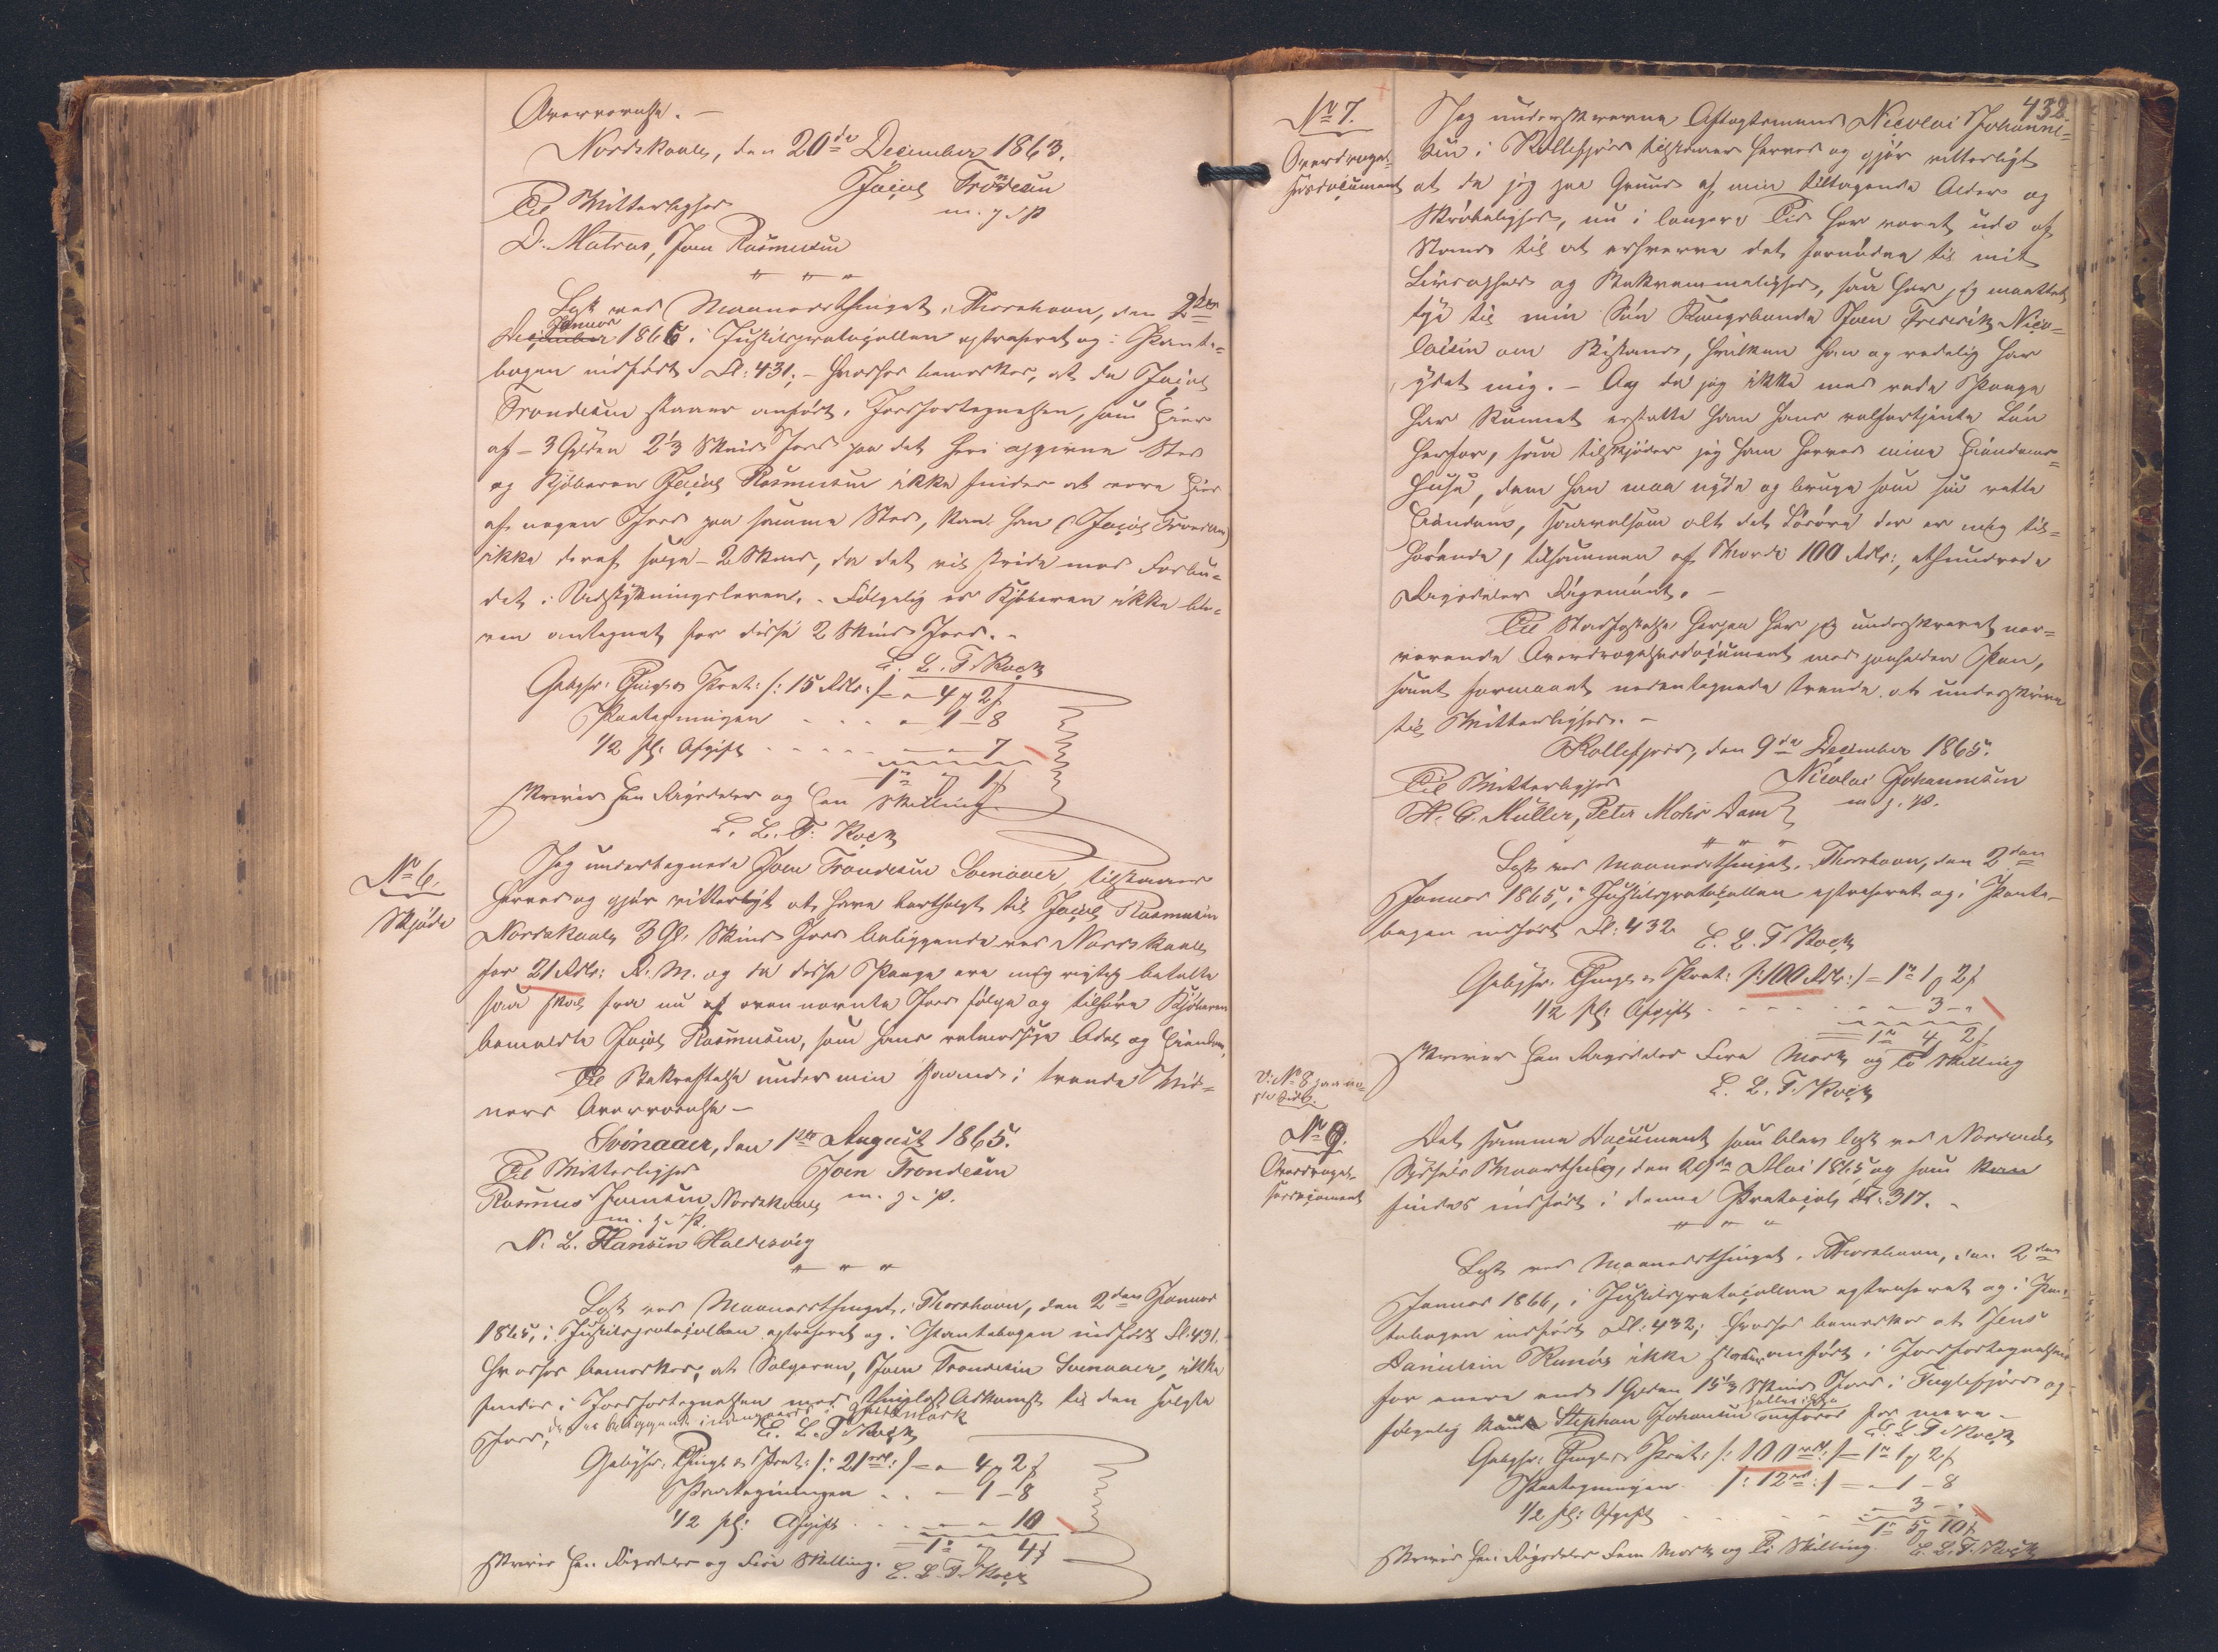 Overværelse. –
Nordskaale, den 20de December 1863.
Jacob Trondesen
Til Vitterlighed
m. f. P.
D. Matras, Joen Rasmusen
" " "
Læst ved Maanedsthinget i Thorshavn, den 2den
Januar
December 1866 i Justitsprotocollen extraheret og i Pante-
bogen indført Fol: 431; – hvorhos bemærkes, at da Jacob
Trondesen staaer anført i Jordfortegnelsen, som Eier
af – 3 Gylden 2 1/3 Skind Jord paa det heri opgivne Sted
og Kjøberen Jacob Rasmusen ikke findes at være Eier
af nogen Jord paa samme Sted, kan han (Jacob Trondesen)
ikke deraf sælge – 2 Skind, da det vil stride mod Forbu-
det i Udstykningsloven. – Følgelig er Kjøberen ikke ble-
ven antegnet for disse 2 Skind Jord. –
E. L. T. Kock
Gebyhr: Thingl. & Prot: /: 15 Rdlr: / = " – 4 # 2 ß
Paategningen . . . . " – 1 – 8
1/2 pCt: Afgift . . . . . " – " – 7
1 rd " # 1 ß
skriver Een Rigsdaler og Een Skilling.
E. L. T. Kock
No 6.
Skjøde
Jeg undertegnede Joen Trondesen Svinaaer, tilstaaer
herved og gjør vitterligt at have bortsolgt til Jacob Rasmusen
Nordskaale 3 Gl. Skind Jord beliggende ved Nordskaale
for 21 Rdlr: R. M. og da disse Penge ere mig rigtig betalte
saa skal fra nu af oven nævnte Jord følge og tilhøre Kjøberen
bemeldte Jacob Rasmusen, som hans velmaadige Odel og Eiendom,
Til Bekræftelse under min Haand i tvende Vid-
ners Overværelse –
Svinaaer, den 1ste August 1865.
Til Vitterlighed
Joen Trondesen
Rasmus Joensen, Nordskaale
m. f. P.
m. f. P.
N. L. Hansen Haldesvig
" " "
Læst ved Maanedsthinget i Thorshavn, den 2den Januar
1865, i Justitsprotocollen extraheret og i Pantebogen indført Fol: 431.
hvorhos bemærkes, at Sælgeren, Joen Trondesen Svinaaer, ikke
findes i Jordfortegnelsen med thinglæst Adkomst til den solgte
Jord,
E. L. T. Kock
Gebyhr: Thingl. & Prot: /: 21 rdl: / = " – 4 # 2 ß
Paategningen . . – 1 – 8
1/2 pCt: Afgift . . . " – " – 10
= 1 rd " # 4 ß
skriver Een Rigsdaler og Fire Skilling.
E. L. T. Kock
432.
No 7.
Overdragel-
sesdocument
Jeg underskrevne Aftægtsmand Nicolai Johanne-
sen i Kollefjord tilstaaer herved og gjør vitterligt
at da jeg paa Grund af min tiltagende Alder og
Skrøbelighed, nu i længere Tid har været ude af
Stand til at erhverve det fornødne til mit
Livsophold og Bekvemmelighed, saa har jeg maattet
tye til min Søn Kongsbonde Joen Frederik Nico-
laisen om Bistand, hvilken han og redelig har
ydet mig. – Og da jeg ikke med rede Penge
har kunnet erstatte ham hans velfortjente Løn
herfor, saa tilskjøder jeg ham herved mine Eiendoms-
Huse, dem han maa nyde og bruge som sin rette
Eiendom, saavelsom alt det Løsøre der er mig til-
hørende, tilsammen af Værdi 100 Rdlr:, ethundrede
Rigsdaler Rigsmønt. –
Til Stadfæstelse herpaa har jeg underskrevet nær-
værende Overdragelsesdocument med paaholden Pen,
samt formaaet nedentegnede tvende at underskrive
til Vitterlighed. –
Kollefjord, den 9de December 1865.
Til Vitterlighed
Nicolai Johannesen
H. C. Müller, Peter Mohr Dam
m. f. P.
" " "
Læst ved Maanedsthinget i Thorshavn, den 2den
Januar 1865, i Justitsprotocollen extraheret og i Pante-
bogen indført Fol: 432
E. L. T. Kock
Gebyhr: Thingl. & Prot: /: 100 Rdlr: / = 1 rd 1 # 2 ß
1/2 pCt: Afgift . . . . . . – 3 – "
= 1 rd 4 # 2 ß
skriver Een Rigsdaler Fire Mark og To Skilling
E. L. T. Kock
V: No 8 paa næ-
ste Side.
No 9.
Overdragel-
sesdocument
Det samme Document som blev læst ved Norderøes
Syssels Vaarthing, den Mai 1865 og som kan
findes indført i denne Protocol Fol: 317. –
" " "
Læst ved Maanedsthinget i Thorshavn, den 2den
Januar 1866, i Justitsprotocollen extraheret og i Pan-
tebogen indført Fol: 432; hvorhos bemærkes at Jens
Danielsen Kunø ikke staaer anført i Jordfortegnelsen
for mere end 1 Gylden 15 1/3 Skind Jord i Fuglefjord og
følgelig Stephan Johansen anføres for mere –
E. L. T. Kock
Gebyhr: Thingl. & Prot: /: 100 rdl: / = 1 rd 1 # 2 ß
Paategningen . /: 12 rd: / = " – 1 – 8
1/2 pCt: Afgift . . . – 3 – "
1 rd 5 # 10 ß
skriver Een Rigsdaler Fem Mark og Ti Skilling.
E. L. T. Kock